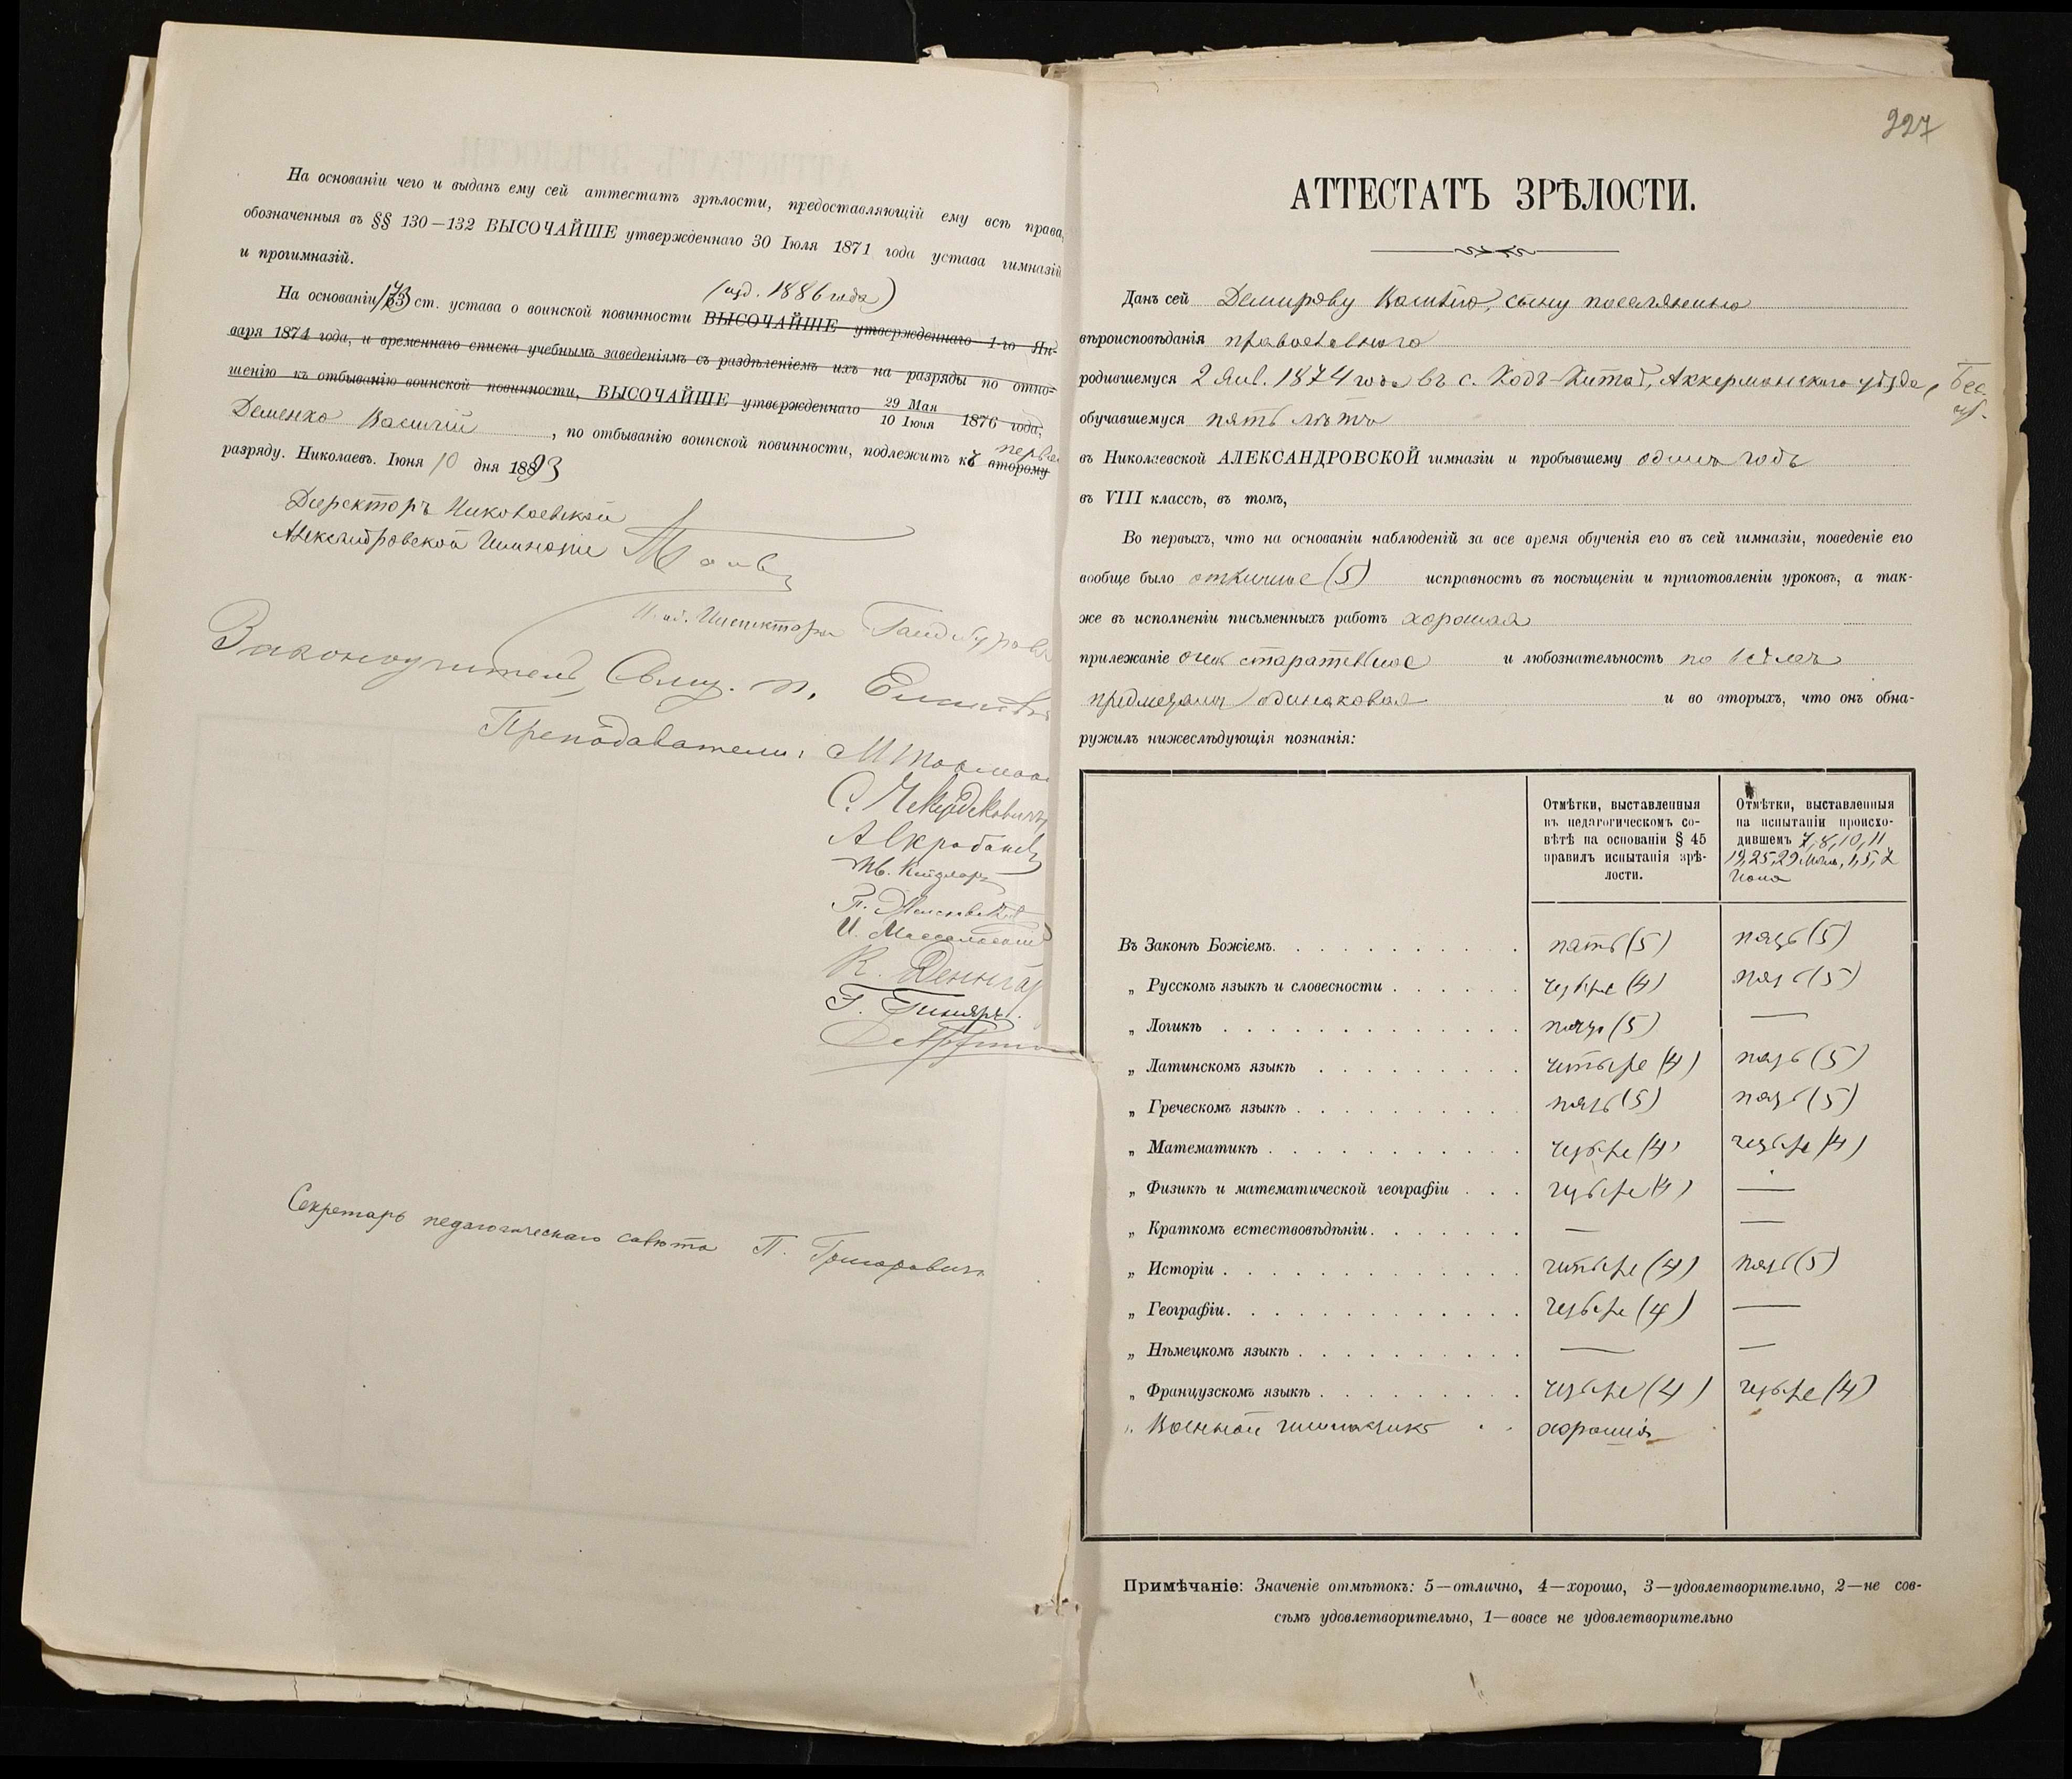 На основаніи чего и выданъ ему сей аттестатъ зрѣлости, предоставляющій ему всѣ права,
обозначенныя въ §§ 130—132 ВЫСОЧАЙШЕ утвержденнаго 30 Іюля 1871 года устава гимназій
и прогимназій.
(изд. 1886 года)
На основаніи ст. устава о воинской повинности ВЫСОЧАЙШЕ утвержденнаго 1-го Ян-
варя 1874 года, и временнаго списка учебнымъ заведеніямъ съ раздѣленіемъ ихъ на разряды по отно-
шенію къ отбыванію воинской повинности, ВЫСОЧАЙШЕ утвержденнаго 29 Мая 10 Іюня 1876 года,
Деменко Василій, по отбыванію воинской повинности, подлежитъ къ второму
разряду. Николаевъ. Іюня 10 дня 1893
Директоръ Николаевской
Александровской Гимназіи
И. об. Инспектора
Законоучитель, Свящ. П.
Преподаватели:
И. Массальскій
Секретарь педагогическаго совѣта П. Григоровичъ
227
АТТЕСТАТЪ ЗРѢЛОСТИ.
Данъ сей Демирову Василію, сыну поселянина
вѣроисповѣданія православнаго
родившемуся 2 Янв. 1874 года въ с. Кодъ-Китай, Аккерманскаго уѣзда, Бес. губ.
обучавшемуся пять лѣтъ
въ Николаевской АЛЕКСАНДРОВСКОЙ гимназіи и пробывшему одинъ годъ
въ VIII классѣ, въ томъ,
Во первыхъ, что на основаніи наблюденій за все время обученія его въ сей гимназіи, поведеніе его
вообще было отличное (5) исправность въ посѣщеніи и приготовленіи уроковъ, а так-
же въ исполненіи письменныхъ работъ хорошая
прилежаніе очень старательное и любознательность по всѣмъ
предметамъ одинаковая и во вторыхъ, что онъ обна-
ружилъ нижеслѣдующія познанія:
Отмѣтки, выставленныя
въ педагогическомъ со-
вѣтѣ на основаніи § 45
правилъ испытанія зрѣ-
лости.
Отмѣтки, выставленныя
на испытаніи происхо-
дившемъ 7, 8, 10, 11
19, 25, 29 Мая, 1, 5, 7
Іюня
Въ Законѣ Божіемъ. пять (5) пять (5)
„ Русскомъ языкѣ и словесности четыре (4) пять (5)
„ Логикѣ пять (5) —
„ Латинскомъ языкѣ четыре (4) пять (5)
„ Греческомъ языкѣ пять (5) пять (5)
„ Математикѣ четыре (4) четыре (4)
„ Физикѣ и математической географіи четыре (4) —
„ Краткомъ естествовѣдѣніи — —
„ Исторіи четыре (4) пять (5)
„ Географіи четыре (4) —
„ Нѣмецкомъ языкѣ — —
„ Французскомъ языкѣ четыре (4) четыре (4)
„ Военной гимнастикѣ хорошія
Примѣчаніе: Значеніе отмѣтокъ: 5—отлично, 4—хорошо, 3—удовлетворительно, 2—не сов-
сѣмъ удовлетворительно, 1—вовсе не удовлетворительно